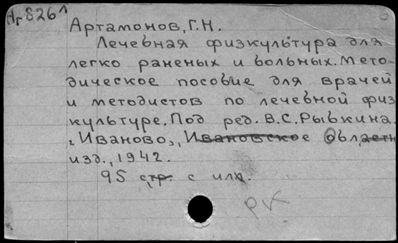 Аг826^1
Артамонов, Г.Н.
Лечебная физкультура для
легко раненых и больных. Мето-
дическое пособие для врачей
и методистов по лечебной физ
культуре. Под ред. В.С. Рывкина.
г. Иваново, Ивановское област
изд., 1942.
95 стр. с илл.
РК